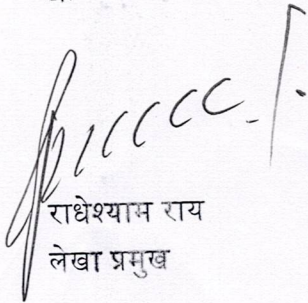 राधेश्याम राय
लेखा प्रमुख